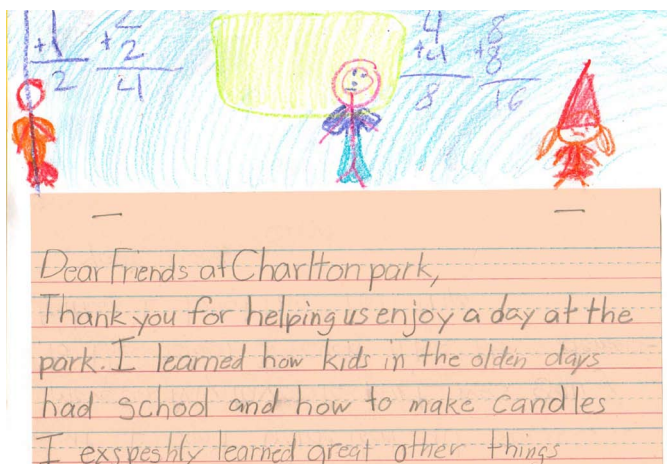 +1
2
2
+2
4
4
+4
8
8
+8
16
Dear Friends at Charlton park,
Thank you for helping us enjoy a day at the
park. I learned how kids in the olden days
had school and how to make candles
I exspeshly learned great other things